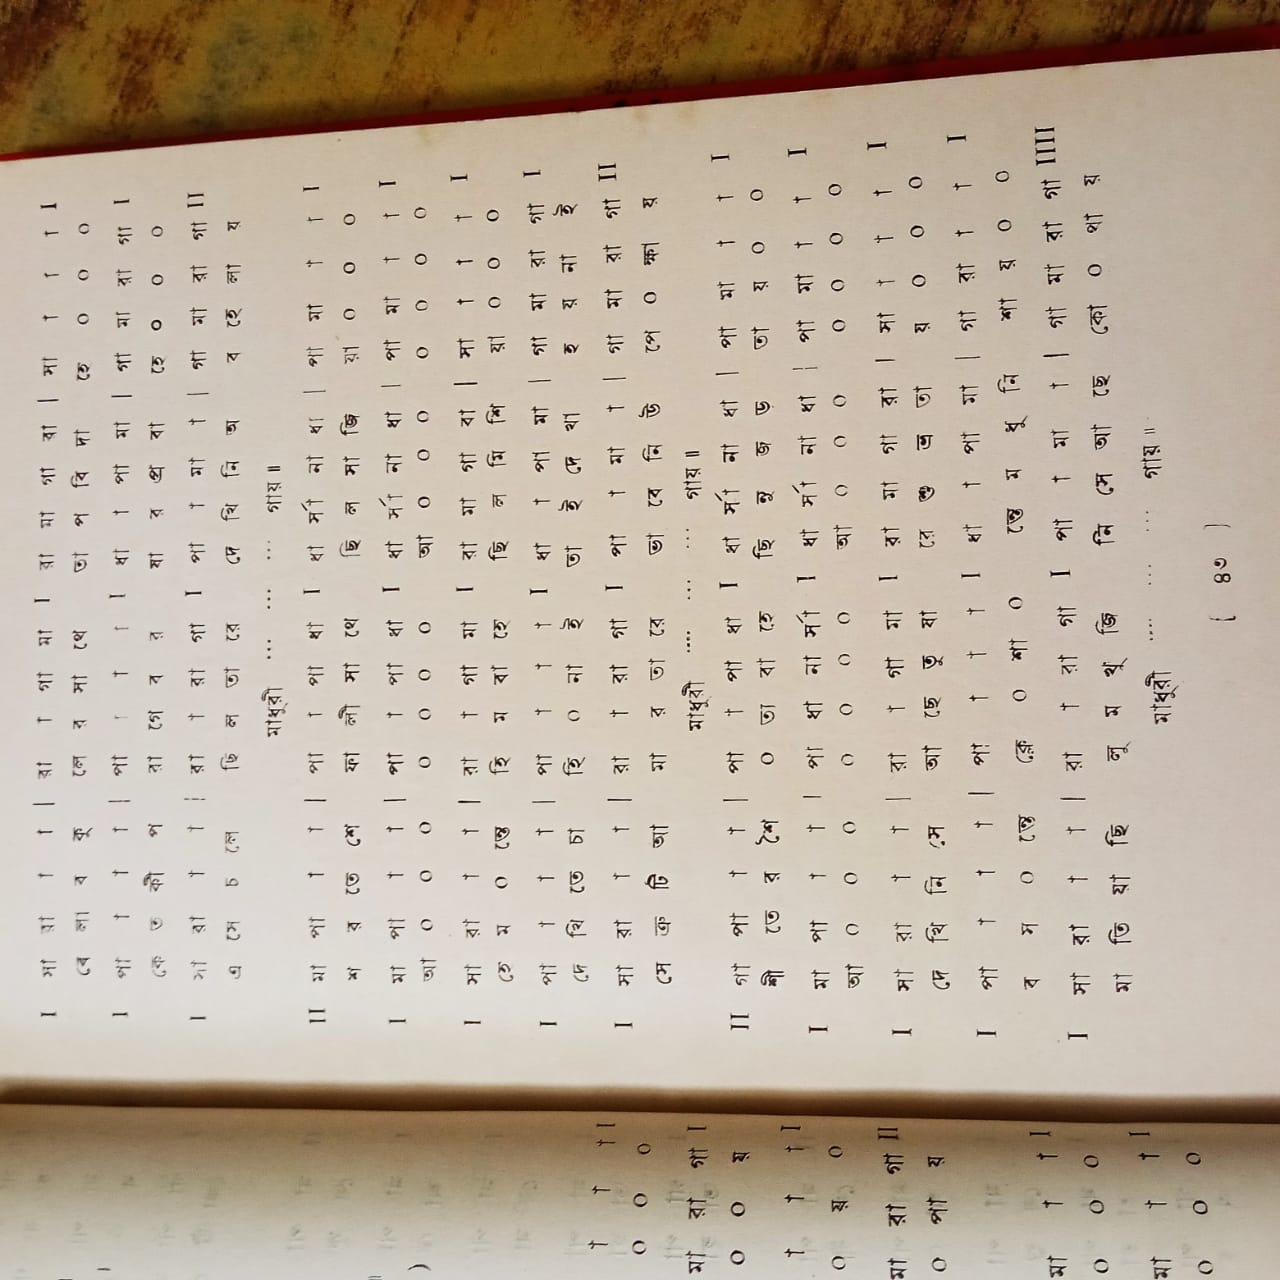 I সা রা া া | রা া গা মা I রা মা গা রা | সা া া া I
বে লা ব কু লে র সা থে তা প বি দা হে ০ ০ ০
I পা া া া | পা া া া I ধা া পা মা | গা মা রা গা I
কে ত কী প রা গে ব র ষা র প্র বা হে ০ ০ ০
I সা রা া া | রা া রা গা I পা া মা া | গা মা রা গা II
এ সে চ লে ছি ল তা রে দে খি নি অ ব হে লা য়
মাধুরী ... ... ... গায়॥
II মা পা া া | পা া পা ধা I ধা র্সা না ধা | পা মা া া I
শ র তে শে ফা লী সা থে ছি ল সা জি য়া ০ ০ ০
I মা পা া া | পা া পা ধা I ধা র্সা না ধা | পা মা া া I
আ ০ ০ ০ ০ ০ ০ ০ আ ০ ০ ০ ০ ০ ০ ০
I সা রা া া | রা া গা মা I রা মা গা রা | সা া া া I
হে ম ০ ন্তে হি ম বা হে ছি ল মি শি য়া ০ ০ ০
I পা া া া | পা া া া I ধা া পা মা | গা মা রা গা I
দে খি তে চা হি ০ না ই তা ই দে খা হ য় না ই
I সা রা া া | রা া রা গা I পা া মা া | গা মা রা গা II
সে ক্ষ টি আ মা র তা রে তা বে নি উ পে ০ ক্ষা য়
মাধুরী .... ... ... গায়॥
II গা পা া া | পা া পা ধা I ধা র্সা না ধা | পা মা া া I
শী তে র শৈ ০ ত্য বা হে ছি নু জ ড় তা য় ০ ০
I মা পা া া | পা ধা না র্সা I ধা র্সা না ধা | পা মা া া I
আ ০ ০ ০ ০ ০ ০ ০ আ ০ ০ ০ ০ ০ ০ ০
I সা রা া া | রা া গা মা I রা মা গা রা | সা া া া I
দে খি নি সে আ ছে তু ষা রে শু ভ্র তা য় ০ ০ ০
I পা া া া | পা া া া I ধা া পা মা | গা রা া া I
ব স ০ ন্তে ক্লে ০ শা ০ ন্তে ম ধু নি শা য় ০ ০
I সা রা া া | রা া রা গা I পা া মা া | গা মা রা গা IIII
মা তি য়া ছি লু ম খুঁ জি নি সে আ ছে কো ০ থা য়
মাধুরী .... ... ... গায়॥
{ ৪৩ }
া া া I
০ ০ ০
মা রা গা I
০ ০ য়
া া া I
০ য় ০
মা রা গা II
০ পা য়
মা া া I
০ ০ ০
মা া া I
০ ০ ০